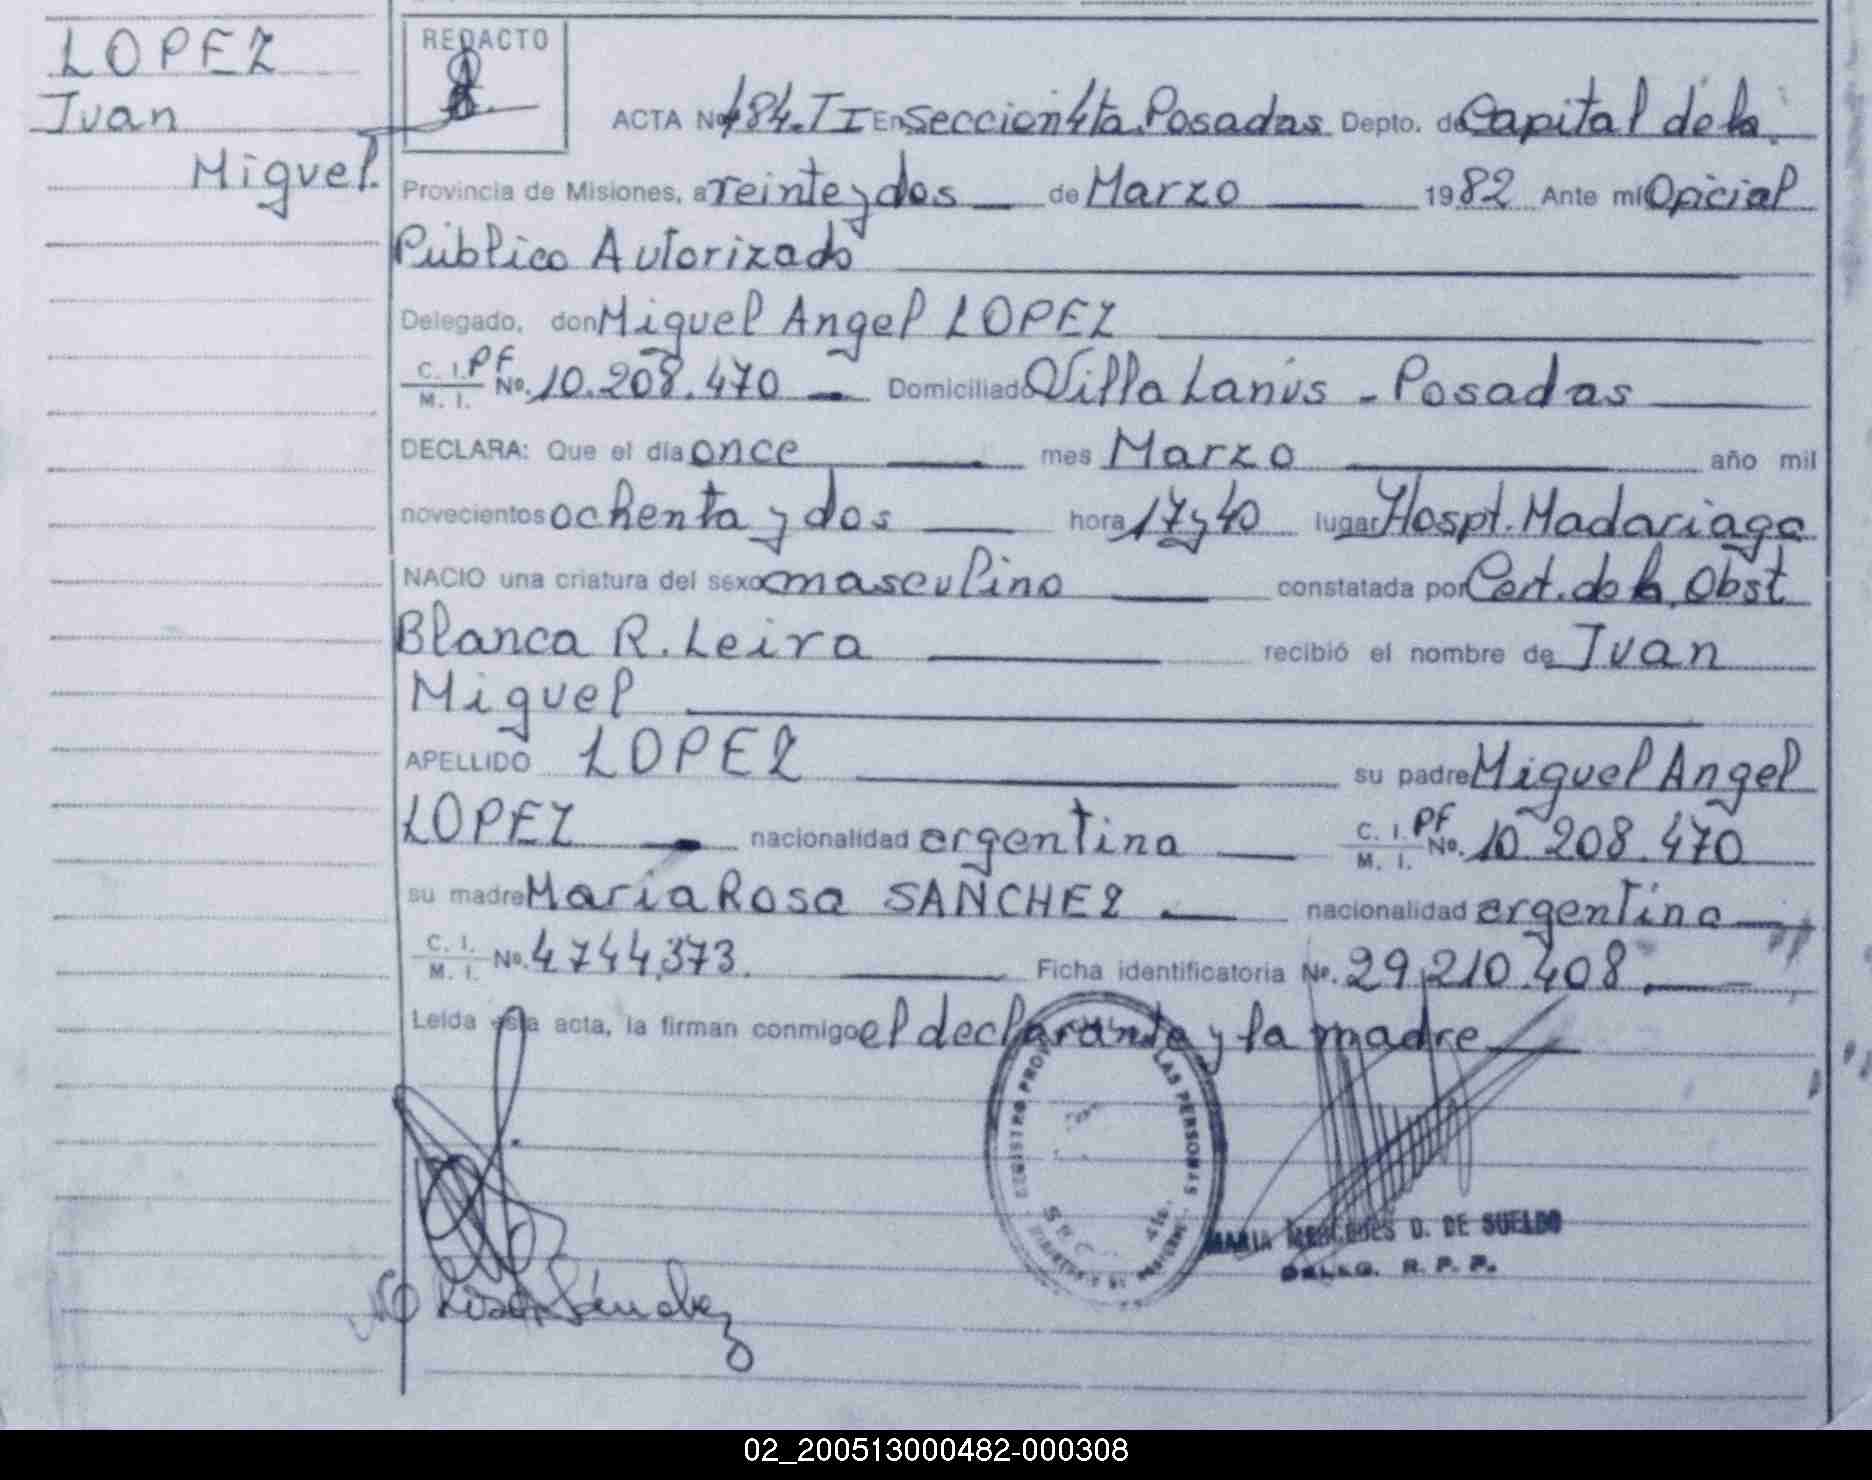 LOPEZ
Ivan
Miguel.
REDACTO
ACTA Nº 484. II En Seccion 4ta. Posadas Depto. de Capital de la
Provincia de Misiones, a veinte y dos de Marzo 1982 Ante mí Oficial
Público Autorizado
Delegado, don Miguel Angel LOPEZ
C. I. PF
M. I. Nº. 10.208.470 Domiciliado Villa Lanús - Posadas
DECLARA: Que el día once mes Marzo año mil
novecientos ochenta y dos hora 17 y 40 lugar Hospt. Madariaga
NACIO una criatura del sexo masculino constatada por Cert. de la Obst
Blanca R. Leiva recibió el nombre de Ivan
Miguel
APELLIDO LOPEZ su padre Miguel Angel
LOPEZ nacionalidad argentina C. I. PF M. I. Nº. 10.208.470
su madre María Rosa SANCHEZ nacionalidad argentina
C. I. M. I. Nº. 4744.373. Ficha identificatoria Nº. 29.210.408
Leída esta acta, la firman conmigo el declarante y la madre
LAS PERSONAS
MARIA MERCEDES D. DE SUELDO
DELEG. R. P. P.
Sánchez
02_200513000482-000308